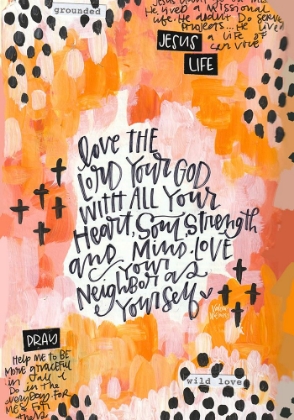 grounded
He lived a missional
life. He didn't Do service
Projects... He lived
a life of
service
JESUS
LIFE
love THE
lord Your GOD
WITH ALL Your
Heart, Soul Strength
and Mind. LOVE
Your
Neighbor as
Yourself
PRAY
Help me to BE
More graceful
in all I
Do in the
everyday. For
wild love